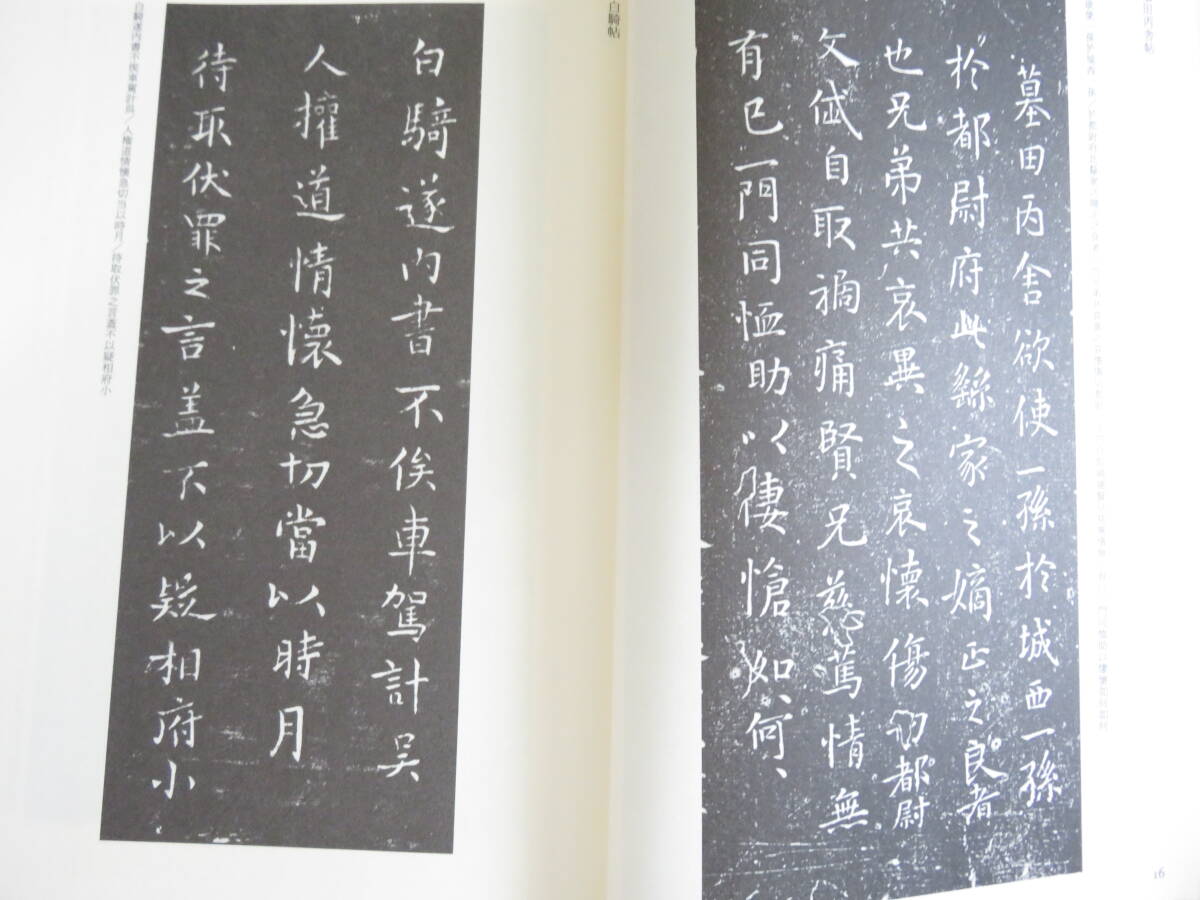 田丙舎帖
墓田丙舍欲使一孫於城西一孫
於都尉府此繇家之嫡正之良者
也兄弟共哀異之哀懷傷切都尉
文岱自取禍痛賢兄慈篤情無
有已一門同恤助以悽愴如、何、
16
白騎帖
白騎遂內書不俟車駕計吴
人權道情懷急切當以時月
待取伏罪之言盖不以疑相府小
白騎遂内書不俟車駕計呉/人権道情懐急切当以時月/待取伏罪之言蓋不以疑相府小